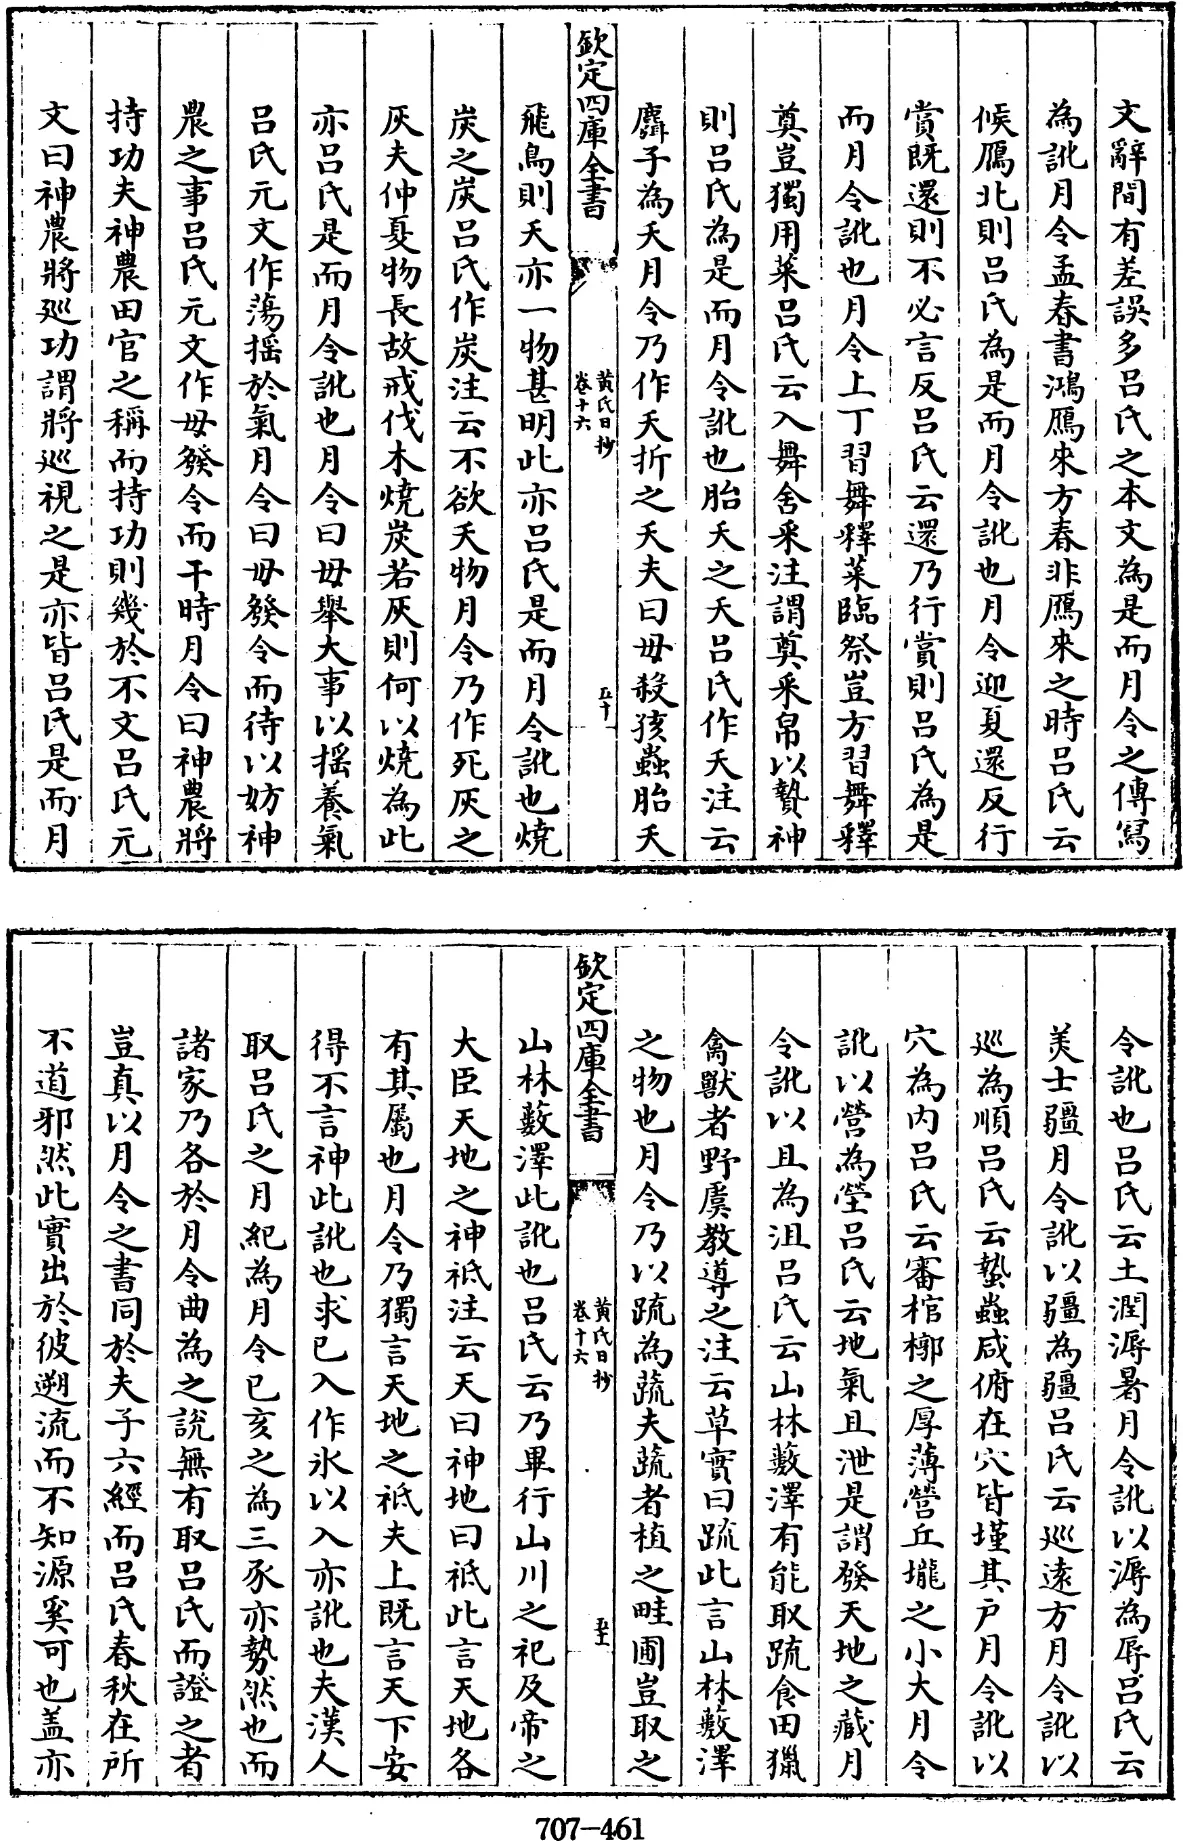 文辭間有差誤多吕氏之本文為是而月令之傳寫
為訛月令孟春書鴻鴈來方春非鴈來之時吕氏云
候鴈北則吕氏為是而月令訛也月令迎夏還反行
賞既還則不必言反吕氏云還乃行賞則吕氏為是
而月令訛也月令上丁習舞釋菜臨祭豈方習舞釋
奠豈獨用菜吕氏云入舞舍采注謂奠采帛以贄神
則吕氏為是而月令訛也胎夭之夭吕氏作夭注云
麛子為夭月令乃作夭折之夭夫曰毋殺孩蟲胎夭
欽定四庫全書
黄氏日抄
卷十六
五十
飛鳥則夭亦一物甚明此亦吕氏是而月令訛也燒
炭之炭吕氏作炭注云不欲夭物月令乃作死灰之
灰夫仲夏物長故戒伐木燒炭若灰則何以燒為此
亦吕氏是而月令訛也月令曰毋舉大事以揺養氣
吕氏元文作蕩揺於氣月令曰毋發令而待以妨神
農之事吕氏元文作毋發令而干時月令曰神農將
持功夫神農田官之稱而持功則幾於不文吕氏元
文曰神農將廵功謂將廵視之是亦皆吕氏是而月
令訛也吕氏云土潤溽暑月令訛以溽為辱吕氏云
美土疆月令訛以疆為疆吕氏云廵逺方月令訛以
廵為順吕氏云蟄蟲咸俯在穴皆墐其户月令訛以
穴為内吕氏云審棺槨之厚薄營丘壠之小大月令
訛以營為塋吕氏云地氣且泄是謂發天地之藏月
令訛以且為沮吕氏云山林藪澤有能取疏食田獵
禽獸者野虞教導之注云草實曰疏此言山林藪澤
之物也月令乃以疏為蔬夫蔬者植之畦圃豈取之
欽定四庫全書
黄氏日抄
卷十六
五十一
山林藪澤此訛也吕氏云乃畢行山川之祀及帝之
大臣天地之神祗注云天曰神地曰祗此言天地各
有其屬也月令乃獨言天地之祗夫上既言天下安
得不言神此訛也求已入作氷以入亦訛也夫漢人
取吕氏之月紀為月令已亥之為三豕亦勢然也而
諸家乃各於月令曲為之說無有取吕氏而證之者
豈真以月令之書同於夫子六經而吕氏春秋在所
不道邪然此實出於彼遡流而不知源奚可也盖亦
707-461